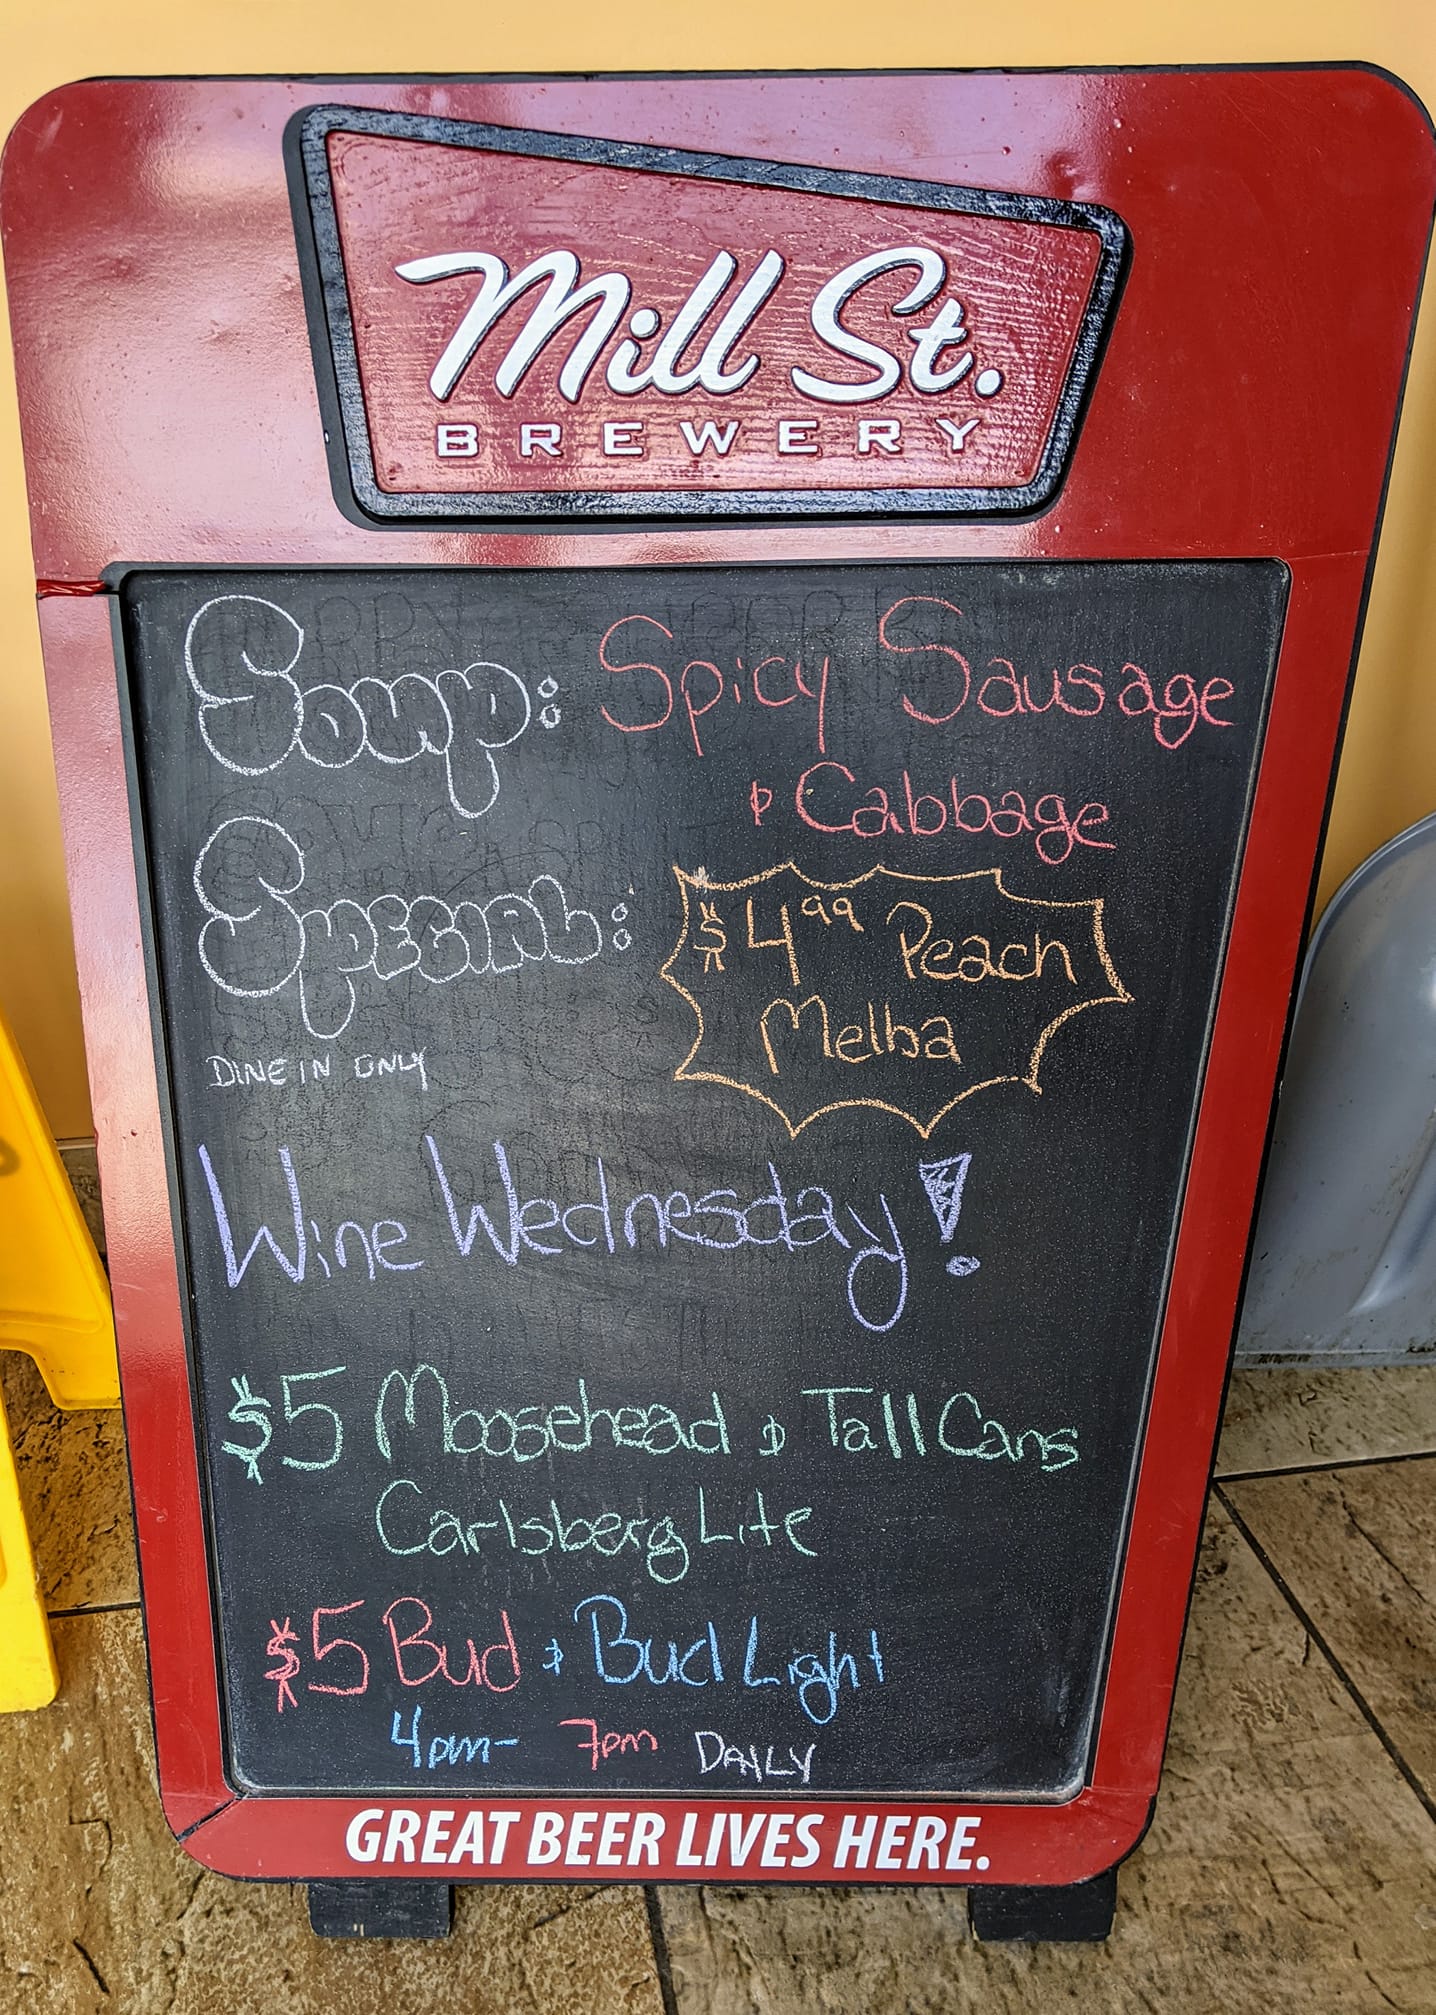 Mill St.
BREWERY
Soup: Spicy Sausage
& Cabbage
SPECIAL: $4.99 Peach
Melba
DINE IN ONLY
Wine Wednesday!
$5 Moosehead & Tall Cans
Carlsberg Lite
$5 Bud & Bud Light
4pm- 7pm DAILY
GREAT BEER LIVES HERE.